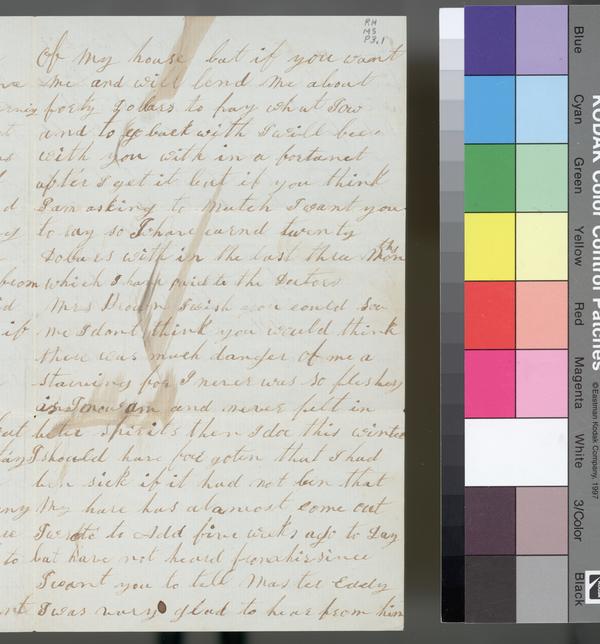 RH
MS
P3.1
Of my house but if you want
me and will lend me about
forty dolars to pay what I ow
and to go back with I will bee
with you with in a fortanet
after I get it but if you think
I am asking to mutch I want you
to say so I have earnd twenty
Dolars with in the last three Mon
ths
from which I have paid to the Doctors
Mrs Brown I wish you could see
if me I dont think you would think
there was much danger of me a
starving for I never was so fleshey
as I now am and never felt in
beter spirits then I do this winter
I should have for goten that I had
ben sick if it had not ben that
My hare has alamost come out
I wrote to Add five weeks ago to Day
to but have not heard from hir since
I want you to tell Master Eddy
I was very glad to hear from him
KODAK Color Control Patches
©Eastman Kodak Company, 1997
Blue
Cyan
Green
Yellow
Red
Magenta
White
3/Color
Black